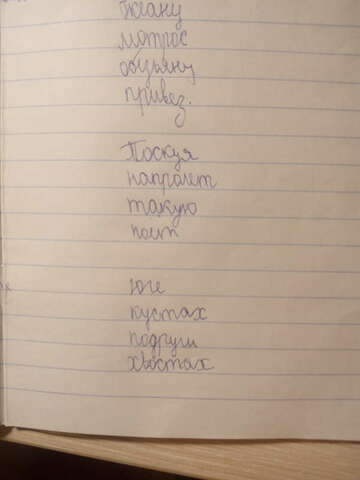 океану
матрос
обезьяну
привёз.
Тоскуя
напролёт
такую
поёт
юге
кустах
подруги
хвостах